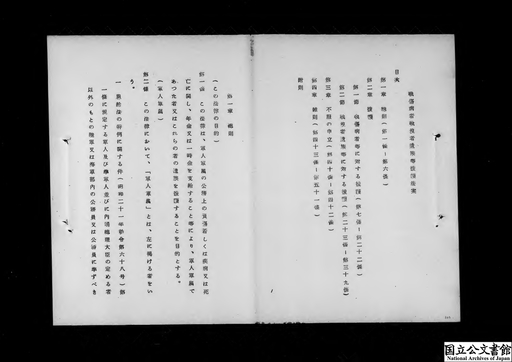 戦傷病者戦没者遺族等援護法案
目次
第一章 総則(第一条―第六条)
第二章 援護
第一節 戦傷病者等に対する援護(第七条―第二十二条)
第二節 戦没者遺族等に対する援護(第二十三条―第三十九条)
第三章 不服の申立(第四十条―第四十二条)
第四章 雑則(第四十三条―第五十一条)
附則
第一章 総則
(この法律の目的)
第一条 この法律は、軍人軍属の公務上の負傷若しくは疾病又は死
亡に関し、年金又は一時金を支給すること等により、軍人軍属で
あつた者又はこれらの者の遺族を援護することを目的とする。
(軍人軍属)
第二条 この法律において、「軍人軍属」とは、左に掲げる者をい
う。
一 恩給法の特例に関する件(昭和二十一年勅令第六十八号)第
一条に規定する軍人及び準軍人並びに内閣総理大臣の定める者
以外のもとの陸軍又は海軍部内の公務員又は公務員に準ずべき
国立公文書館
National Archives of Japan